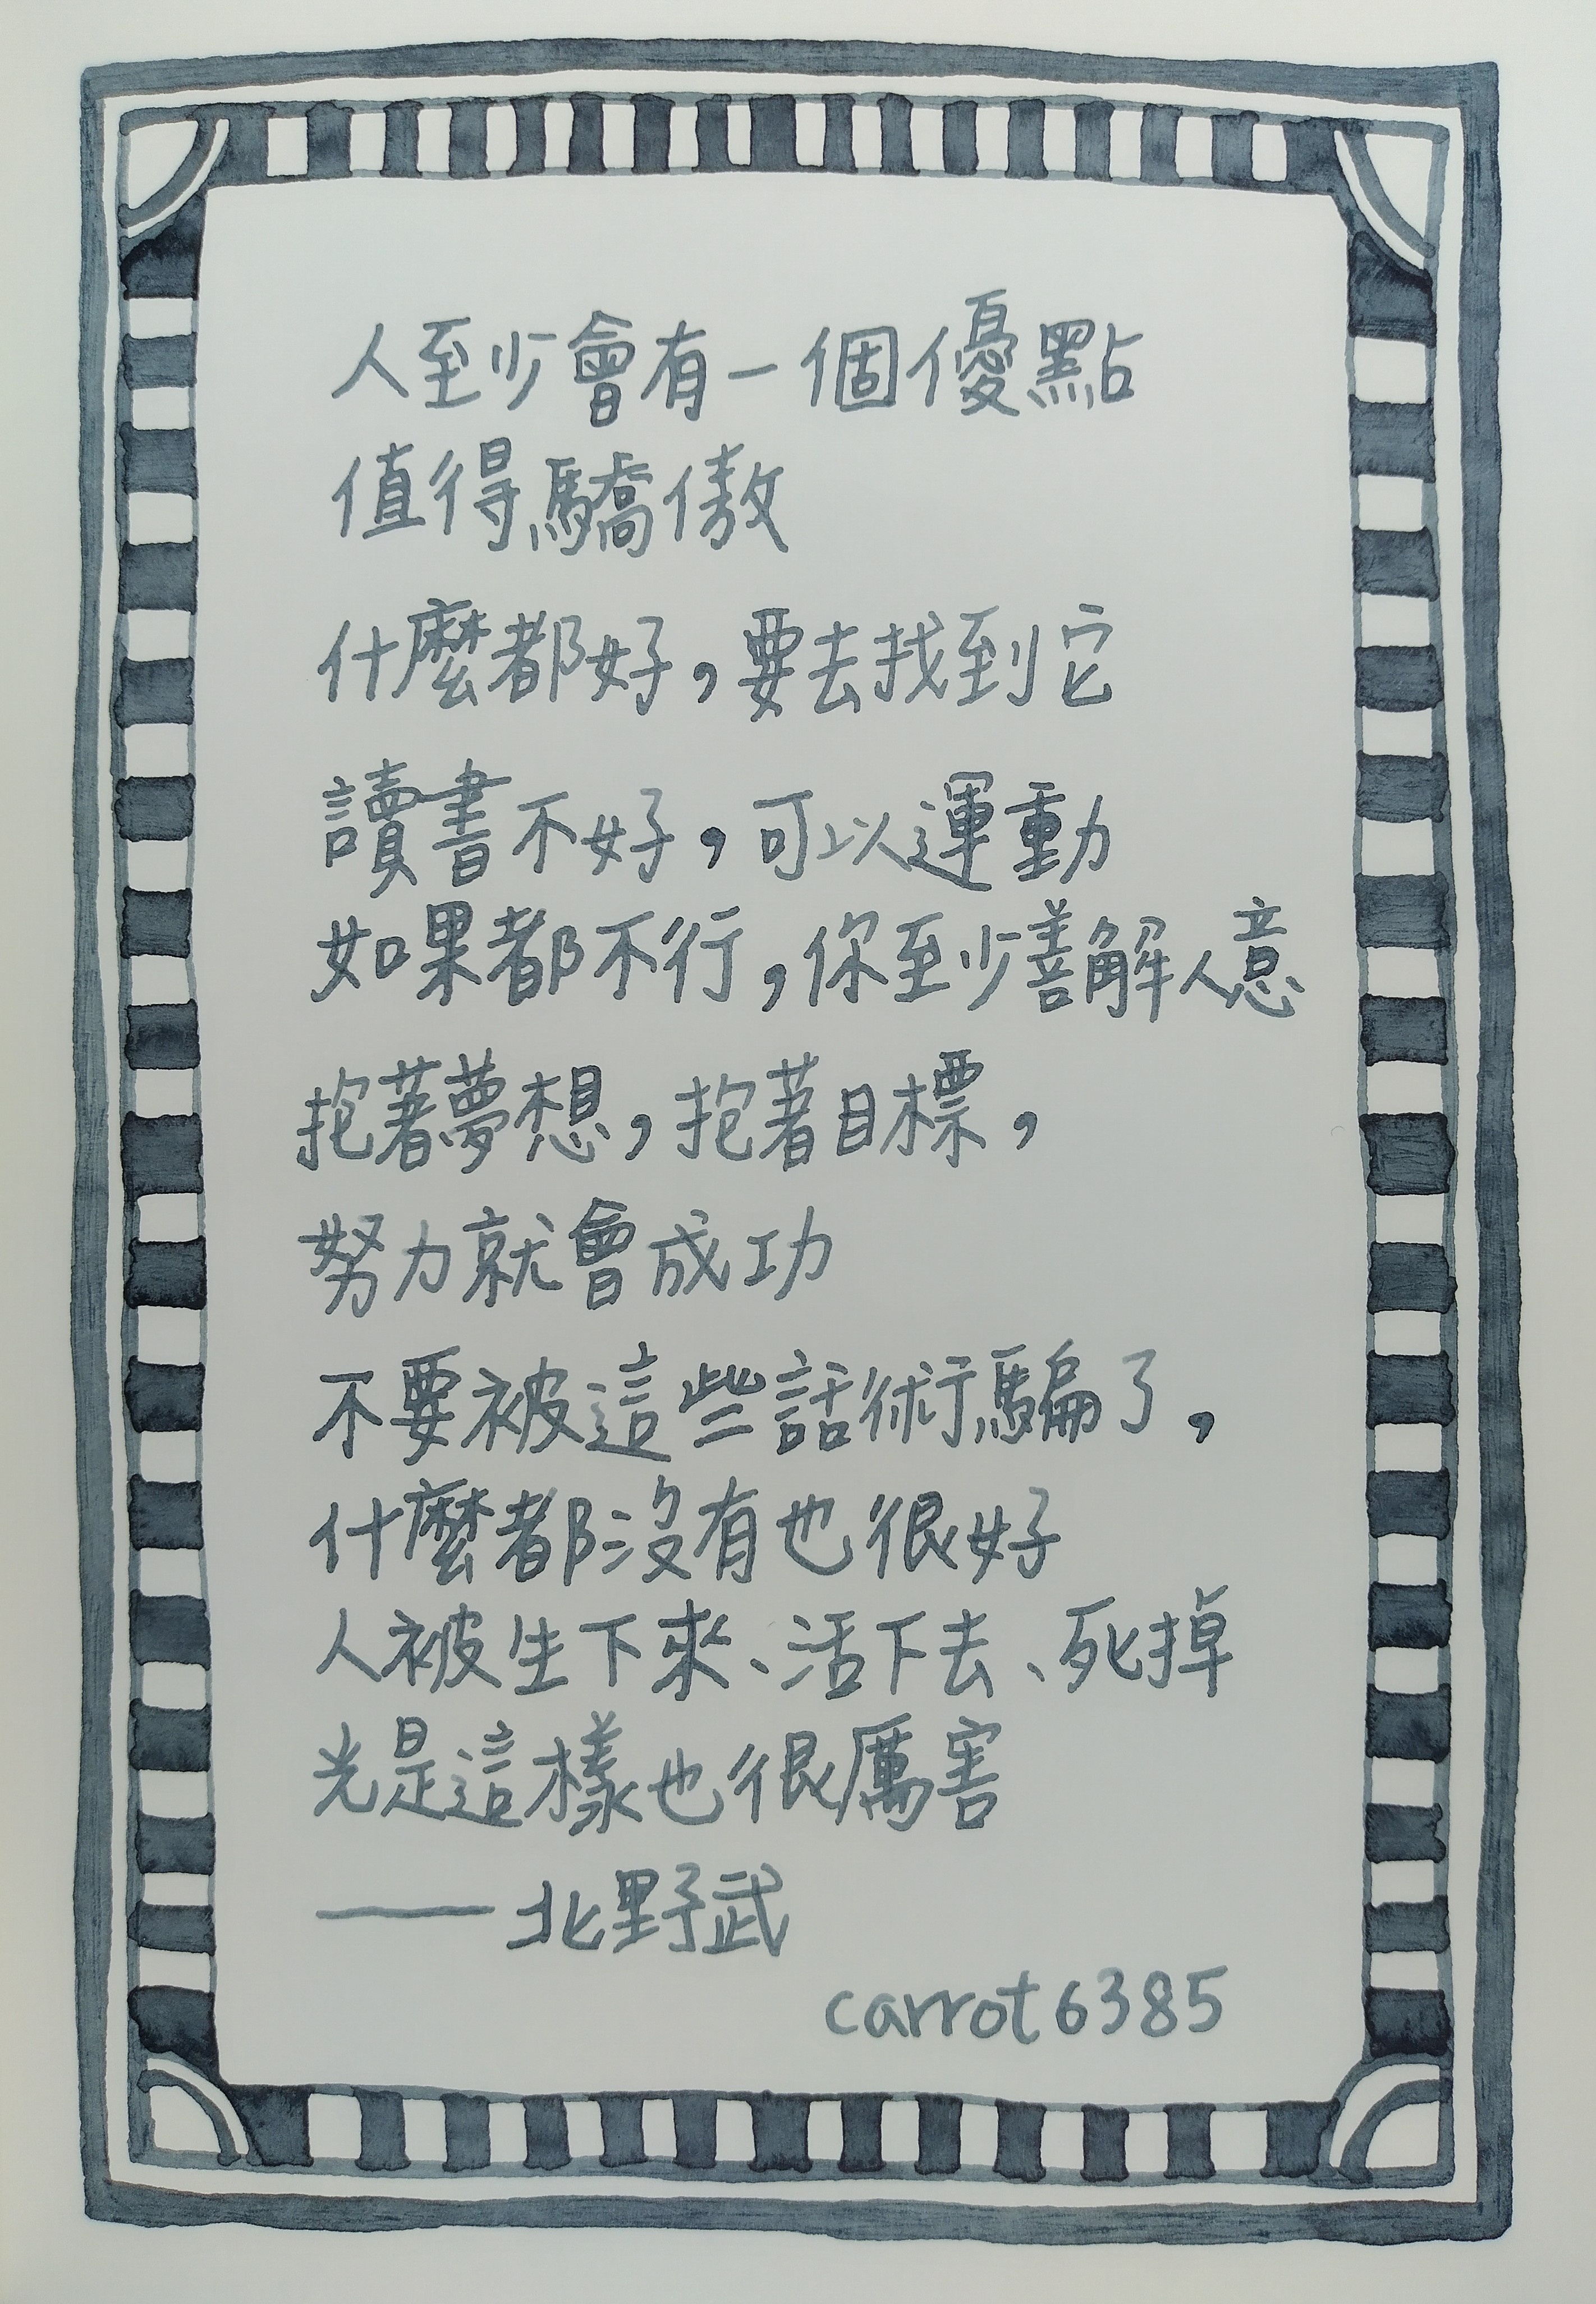 人至少會有一個優點
值得驕傲
什麼都好，要去找到它
讀書不好，可以運動
如果都不行，你至少善解人意
抱著夢想，抱著目標，
努力就會成功
不要被這些話術騙了，
什麼都沒有也很好
人被生下來、活下去、死掉
光是這樣也很厲害
——北野武
carrot6385